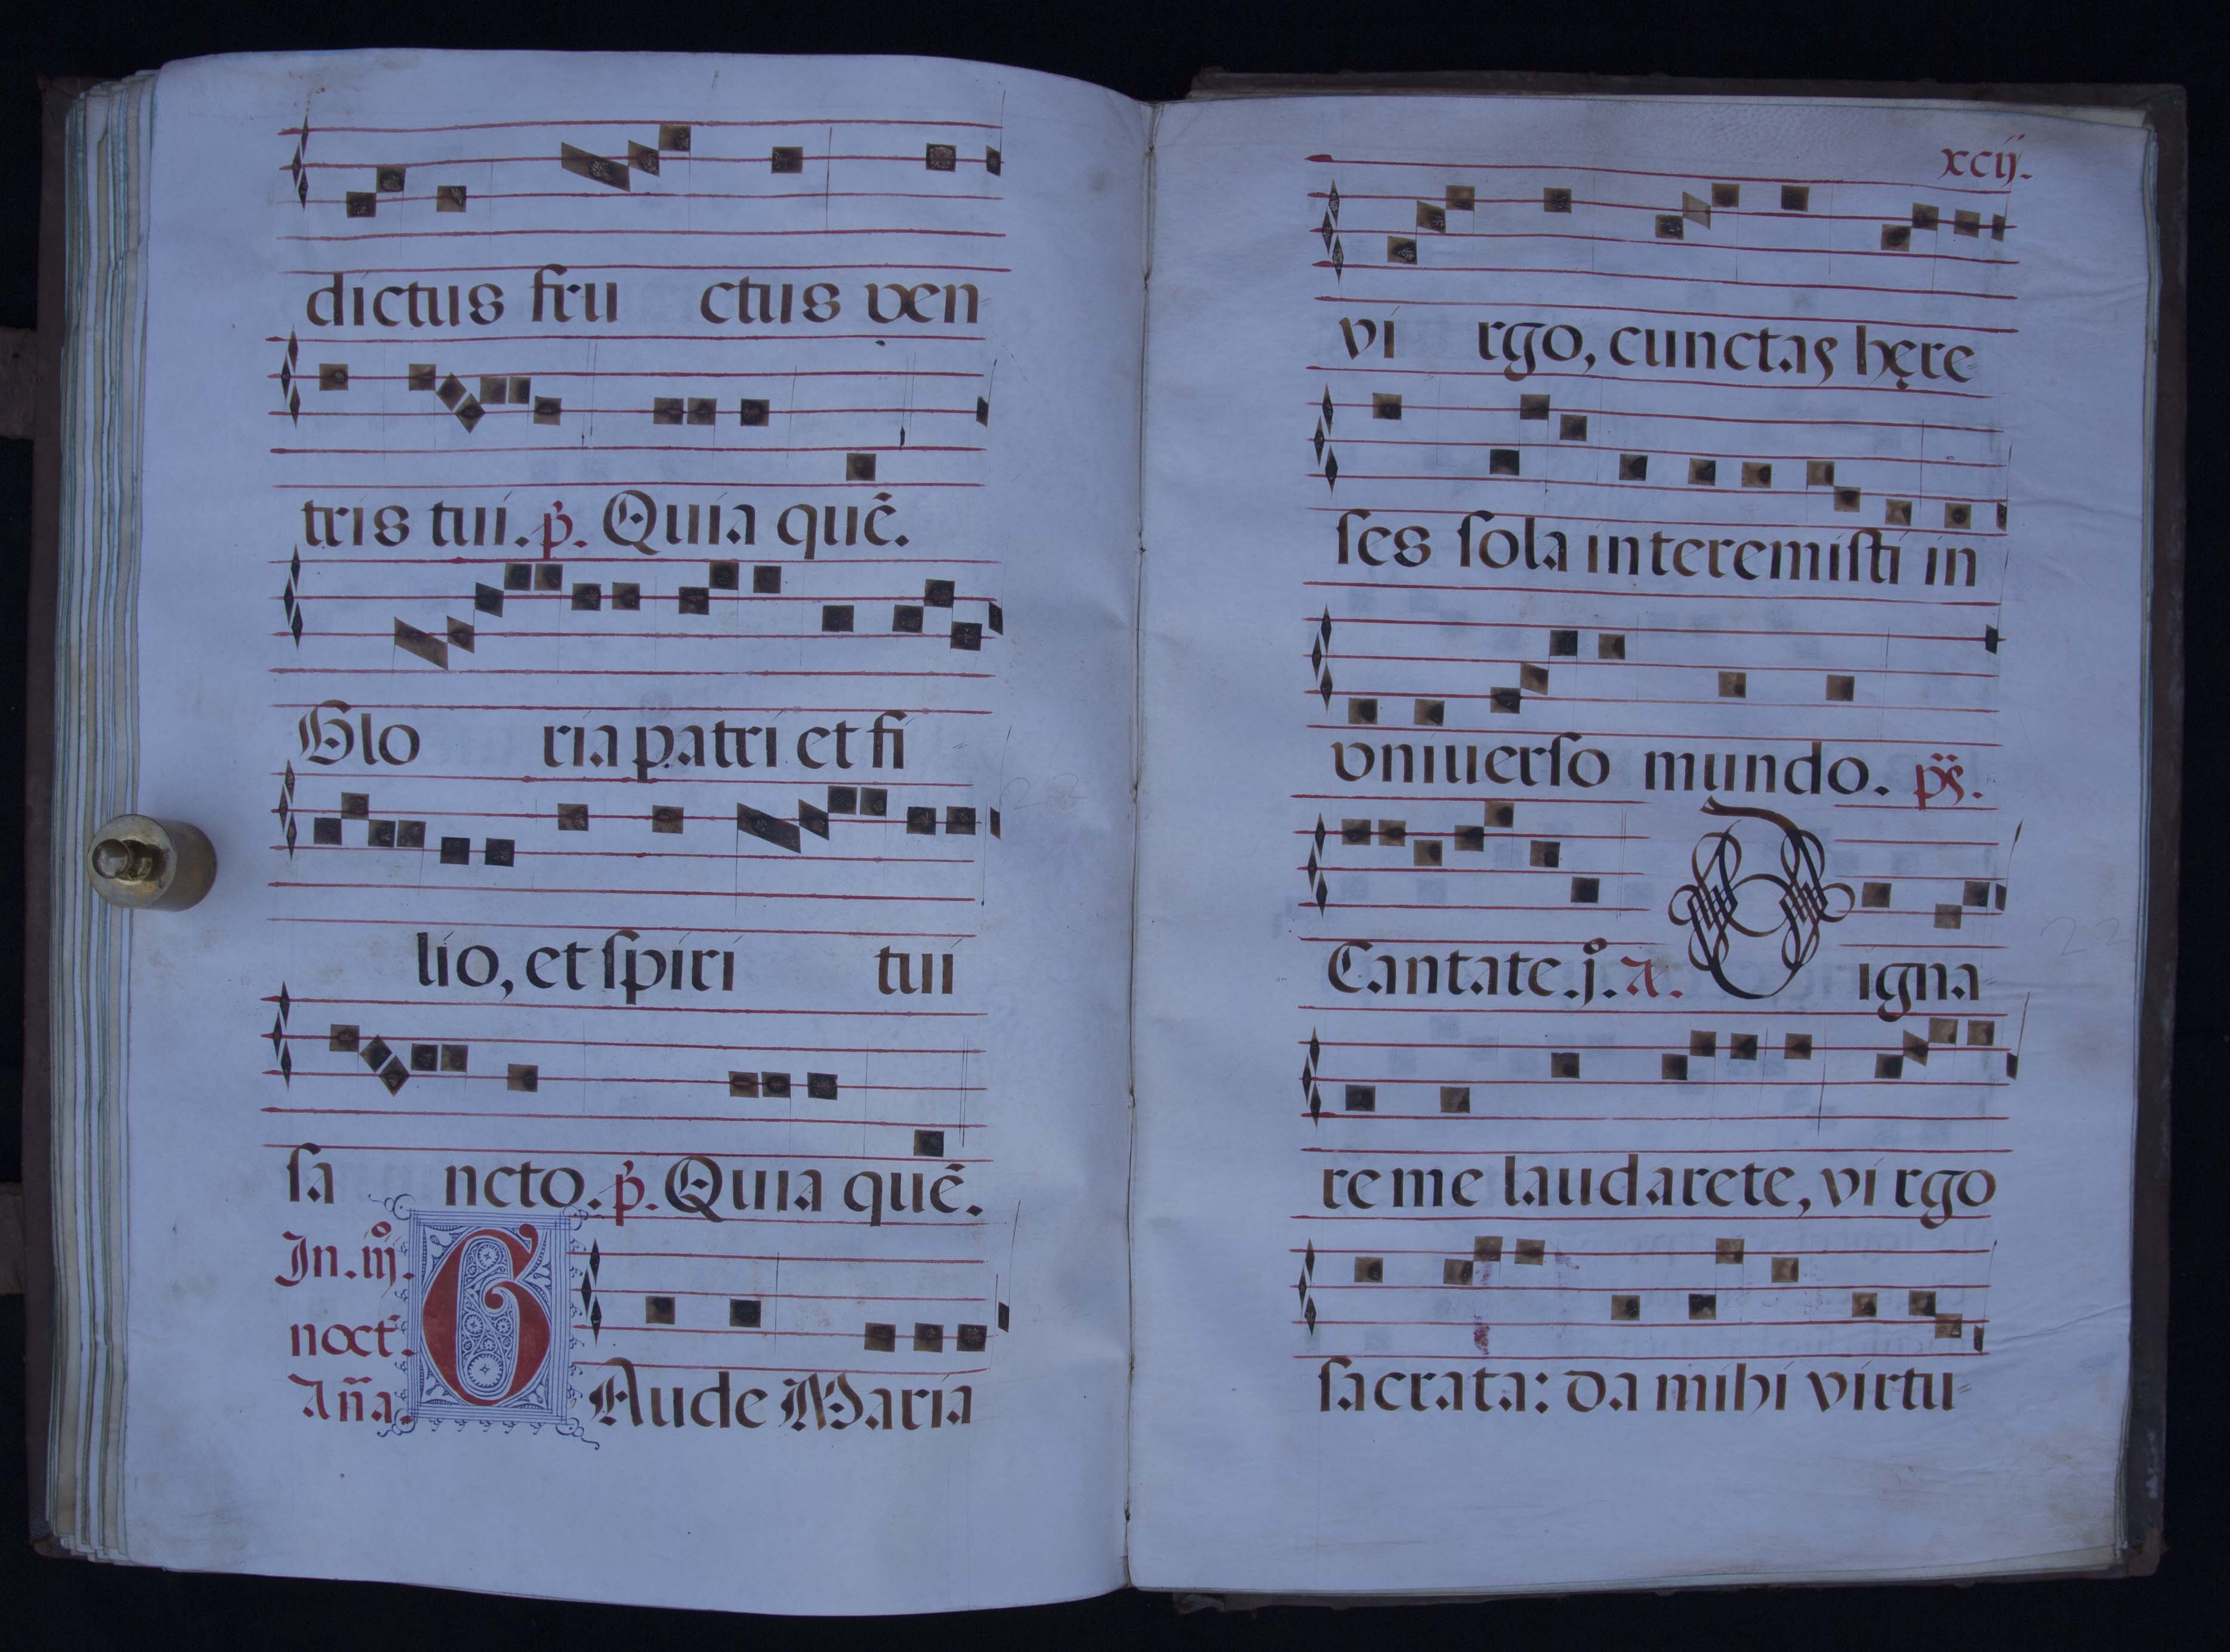 dictus fru ctus ven=
tris tui. p̃. Quia quẽ.
Glo ria patri et fi
lio, et ſpiri tui
ſa ncto. p̃. Quia quẽ.
In. iijº.
noct̃.
Añа.
GAude Maria
xcij.
vi rgo, cunctas hęre=
ſes ſola interemiſti in
vniuerſo mundo. ps̃.
Cantate. jº. A. Digna
re me laudare te, vi rgo
ſacrata: da mihi virtu=
22